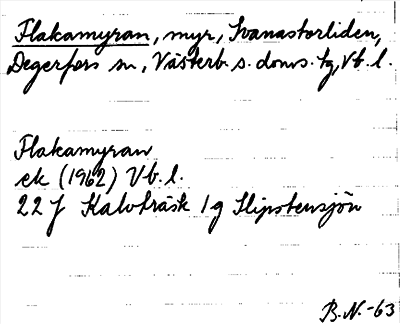 Flakamyran, myr, Svanastorliden,
Degerfors sn, Västerb. s. doms. tg, Vb. l.
Flakamyran
ek (1962) Vb. l.
22 J Kalvträsk 1 g Slipstensjön
B.N.-63